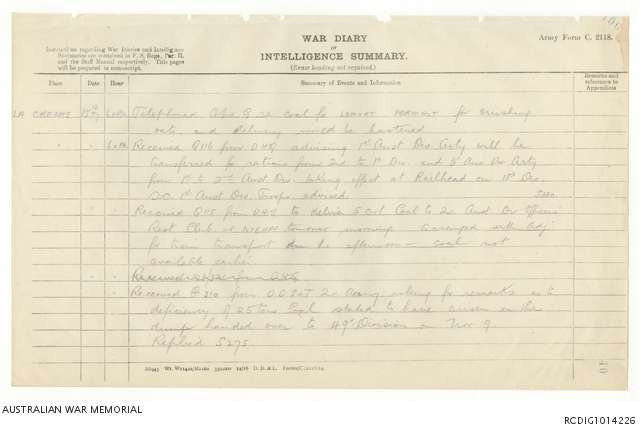 WAR DIARY
OF
INTELLIGENCE SUMMARY.
(Erase heading not required.)
Army Form C. 2118.
Instructions regarding War Diaries and Intelligence
Summaries are contained in F. S. Regs., Part II.
and the Staff Manual respectively. Title pages
will be prepared in manuscript.
Place Date Hour Summary of Events and Information Remarks and references to Appendices
Telephoned re Coal for for crushing
oats, and delivery would be hastened
Received Q116 from DHQ advising 1st Aust Div Arty will be
transferred for rations from 2nd to 1st Div. and 5 Aus Div Arty
from 1st to 2nd Aust Div. taking effect at Railhead on 18th Dec.
S.O. 1st Aust Div. Troops advised.
Received Q115 from DHQ to deliver 5 Cwt Coal to 2nd Aust Div Officers
Rest Club at tomorrow morning. Arranged with Adj
for train transport due the afternoon – coal not
available earlier.
Received from DHQ
Received 210 from D.D.S&T. 2nd Army asking for remarks as to
deficiency of 25 tons Coal stated to have arisen on the
dump handed over to 49th Division on Nov 9.
Replied S275.
AUSTRALIAN WAR MEMORIAL
RCDIG1014226